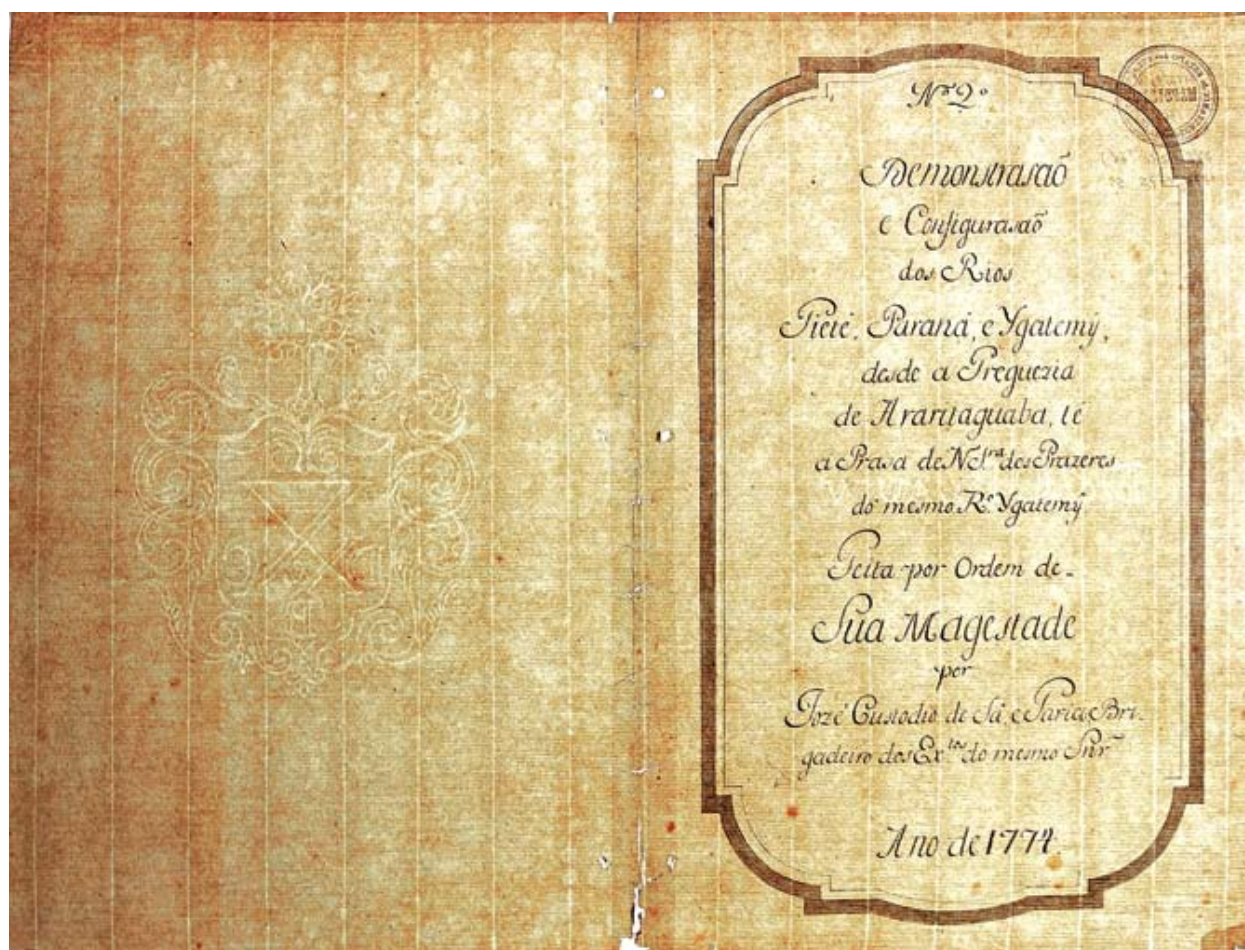 Nº 2º
Demonstrasaõ
e Configurasaõ
dos Rios
Tieté, Paraná, e Ygatemÿ,
desde a Freguezia
de Araritaguaba, té
a Prasa de N. S.ra dos Prazeres
do mesmo R.º Ygatemÿ
Feita por Ordem de
Sua Magestade
por
Jozé Custodio de Sá, e Faria, Bri-
gadeiro dos Ex.tos do mesmo Snr̃
Ano de 1774